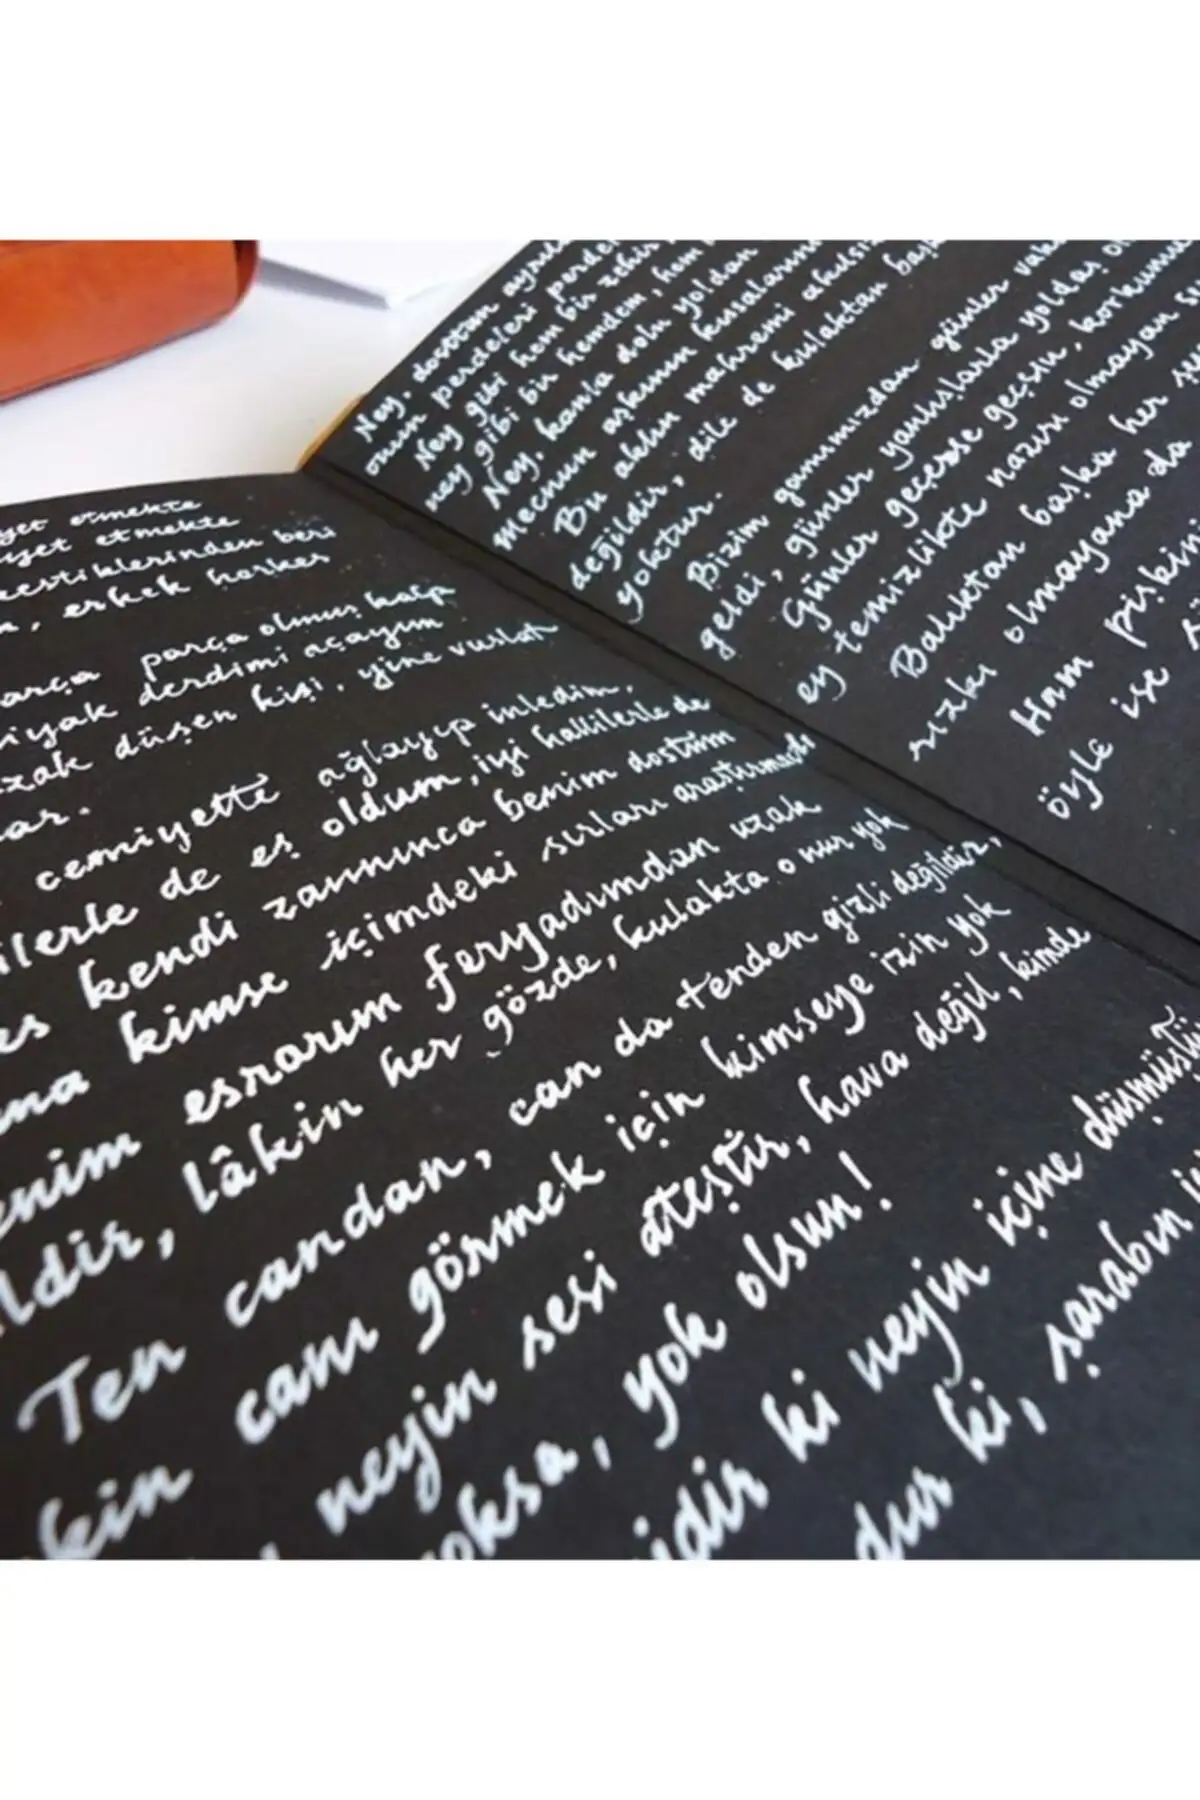 yet etmekte
yet etmekte
kestiklerinden beri
erkek herkes
parça olmuş kalp
derdimi açayım
düşen kişi, yine vuslat
cemiyette ağlayıp inledim,
ilerle de eş oldum, iyi hallilerle de
es kendi zannınca benim dostum
ma kimse içimdeki sırları araştırmadı
enim esrarım feryadımdan uzak
ildir, lâkin her gözde, kulakta o nur yok
Ten candan, can da tenden gizli değildir,
kin canı görmek için kimseye izin yok
neyin sesi ateştir, hava değil, kimde
oksa, yok olsun!
idir ki neyin içine düşmüştü
dur ki, şarabın iç
Ney, dosttan ayrı
onun perdeleri perde
Ney gibi hem bir zehir
ney gibi bir hemdem, hem
Ney, kanla dolu yoldan
mecnun aşkının kıssalarını
Bu aklın mahremi akılsı
değildir, dile de kulaktan baş
yoktur.
Bizim gamımızdan günler vak
geldi, günler yanışlarla yoldaş ol
Günler geçerse geçsin, korkumu
ey temizlikte naziri olmayan se
Balıktan başka her
rızkı olmayana da
Ham pişkin
öyle ise